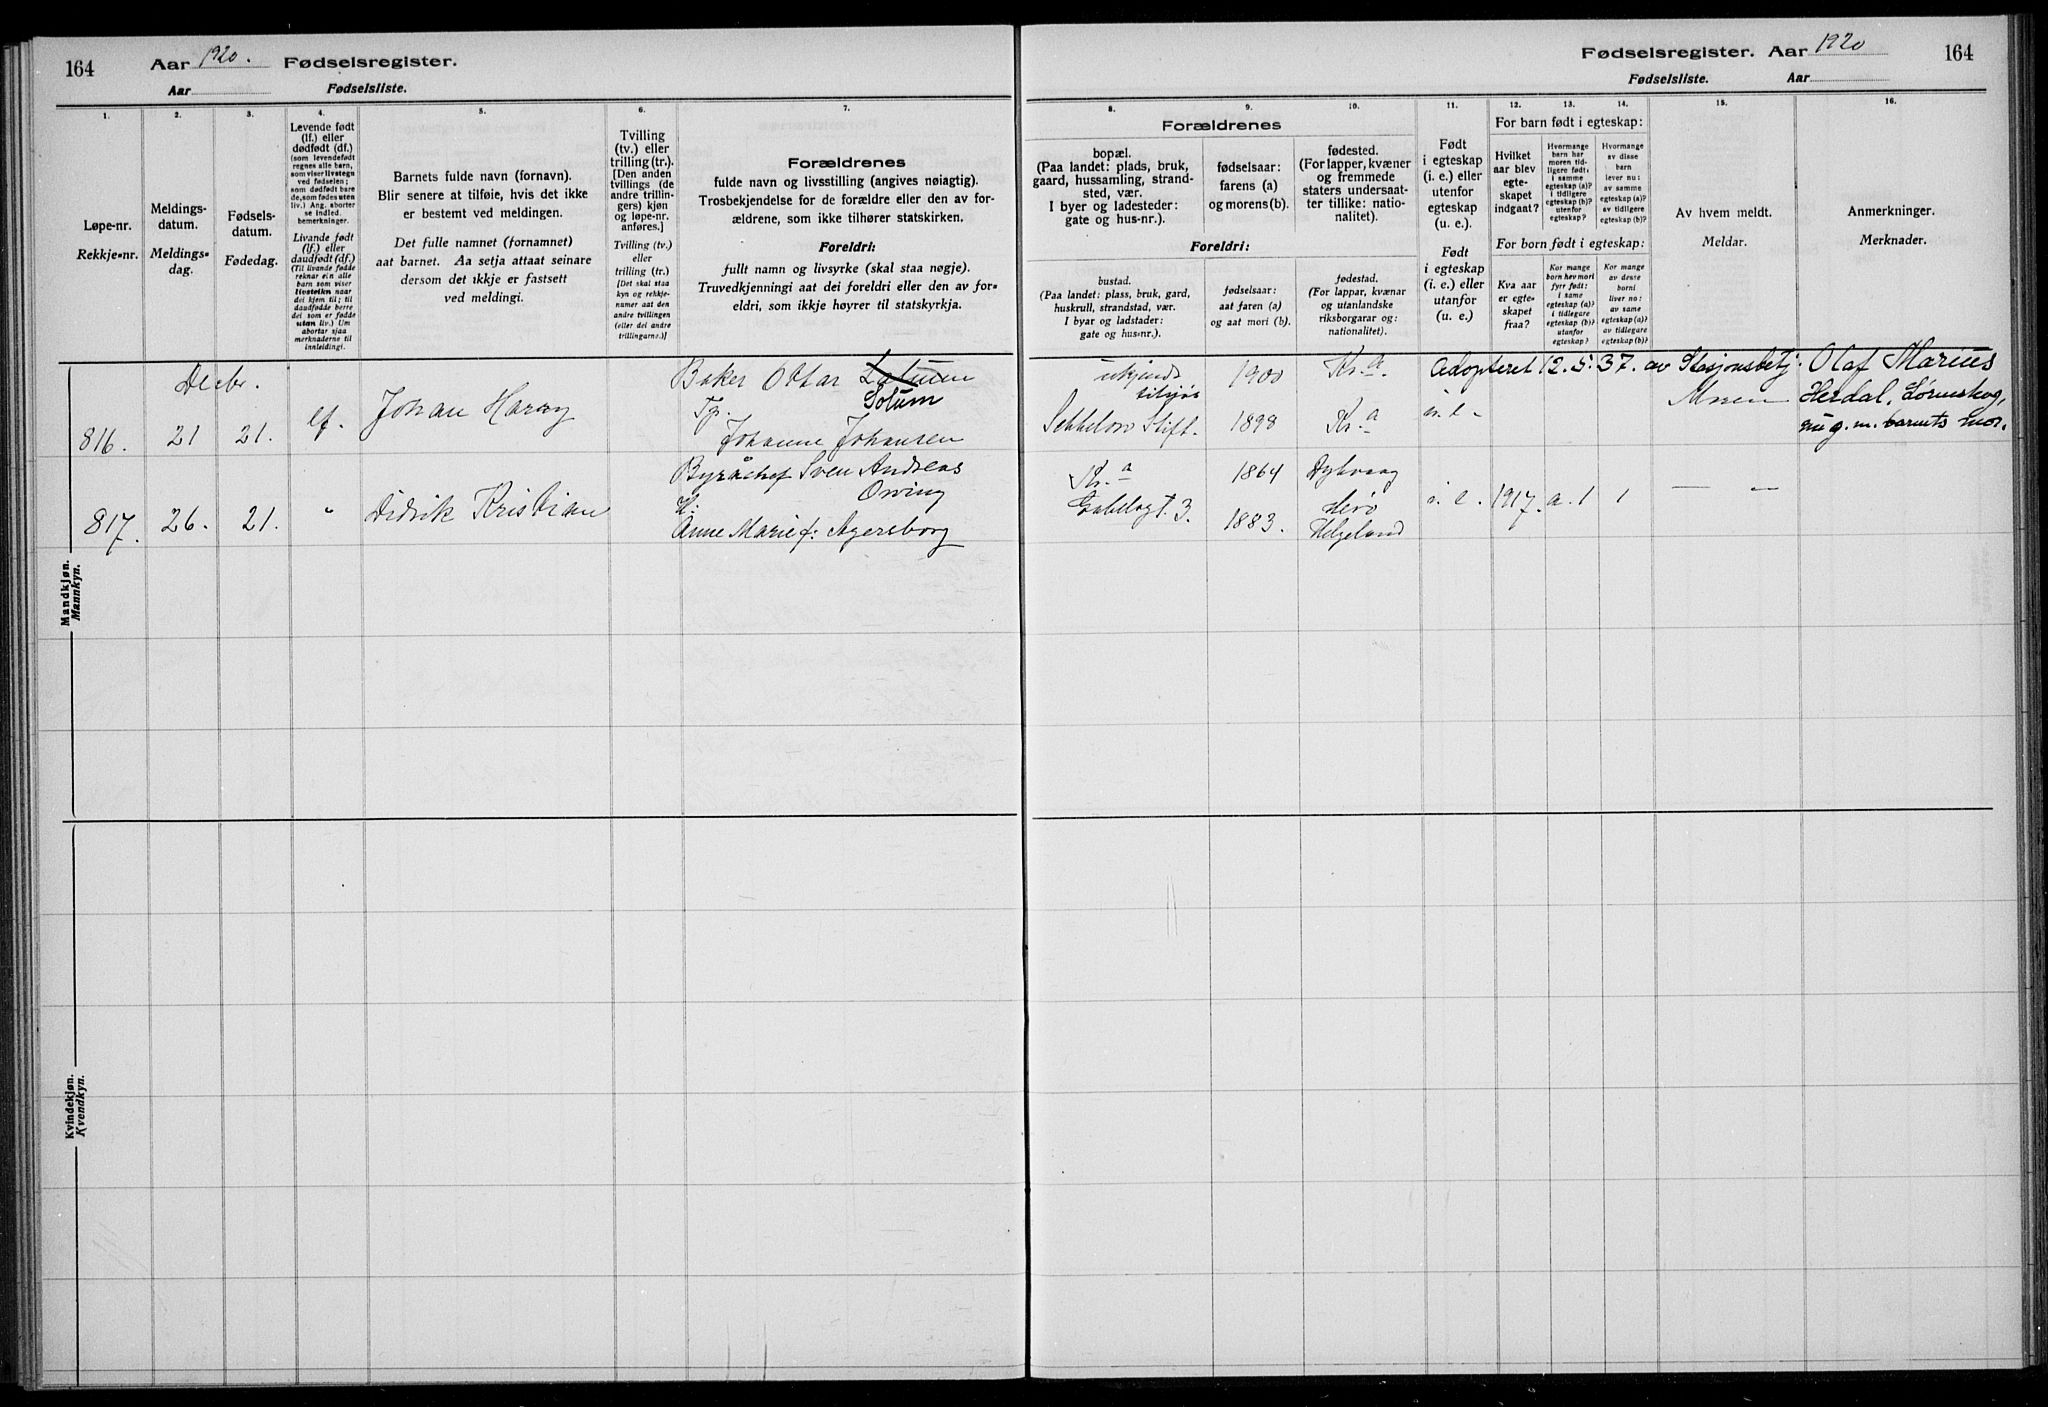 164
Aar 1920. Fødselsregister.
Aar Fødselsliste.
Fødselsregister. Aar 1920
164
Fødselsliste. Aar
1.
2.
3.
4.
5.
6.
7.
Løpe-nr.
Rekkje-nr.
Meldings-
datum.
Meldings-
dag.
Fødsels-
datum.
Fødedag.
Levende født
(lf.) eller
dødfødt (df.)
(som levendefødt
regnes alle barn,
som viser livstegn
ved fødselen;
som dødfødt bare
de, som fødes uten
liv.) Ang. aborter
se indled.
bemerkninger.
Livande født
(lf.) eller
daudfødt (df.)
(Til livande fødde
reknar ein alle
barn som viser
livsteikn naar
dei kjem til; til
daudfødde berre
dei som er fødde
utan liv.) Um
abortar sjaa
merknaderne til
innleidingi.
Barnets fulde navn (fornavn).
Blir senere at tilføie, hvis det ikke
er bestemt ved meldingen.
Det fulle namnet (fornamnet)
aat barnet. Aa setja attaat seinare
dersom det ikkje er fastsett
ved meldingi.
Tvilling
(tv.) eller
trilling (tr.).
[Den anden
tvillings (de
andre trillin-
gers) kjøn
og løpe-nr.
anføres.]
Tvilling (tv.)
eller
trilling (tr.)
[Det skal staa
kyn og rekkje-
numer aat den
andre tvillingen
(eller dei andre
trillingarne.)]
Forældrenes
fulde navn og livsstilling (angives nøiagtig).
Trosbekjendelse for de forældre eller den av for-
ældrene, som ikke tilhører statskirken.
Foreldri:
fullt namn og livsyrke (skal staa nøgje).
Truvedkjenningi aat dei foreldri eller den av for-
eldri, som ikkje høyrer til statskyrkja.
8.
9.
10.
11.
12.
13.
14.
15.
16.
Forældrenes
bopæl.
(Paa landet: plads, bruk,
gaard, hussamling, strand-
sted, vær.
I byer og ladesteder:
gate og hus-nr.).
fødselsaar:
farens (a)
og morens (b).
fødested.
(For lapper, kvæner
og fremmede
staters undersaat-
ter tillike: natio-
nalitet).
Foreldri:
bustad.
(Paa landet: plass, bruk, gard,
huskrull, strandstad, vær.
I byar og ladstader:
gate og hus-nr.).
fødselsaar:
aat faren (a)
og aat mori (b).
fødestad.
(For lappar, kvænar
og utanlandske
riksborgarar og:
nationalitet).
Født
i egteskap
(i. e.) eller
utenfor
egteskap
(u. e.).
Født
i egteskap
(i. e.) eller
utanfor
(u. e.).
For barn født i egteskap:
Hvilket
aar blev
egte-
skapet
indgaat?
Hvormange
barn har
moren tid-
ligere født:
i samme
egteskap (a)?
i tidligere
egteskap (b)?
utenfor
egteskap?
Hvormange
av disse
barn
lever nu:
av samme
egteskap (a)?
av tidligere
egteskap (b)?
For born født i egteskap:
Kva aar
er egte-
skapet
fraa?
Kor mange
born hev mori
fyrr født:
i same
egteskap (a)?
i tidlegare
egteskap (b)?
utanfor
egteskap?
Kor mange
av desse
borni
liver no:
av same
egteskap (a)?
av tidlegare
egteskap (b)?
Av hvem meldt.
Meldar.
Anmerkninger.
Merknader.
Mandkjøn.
Mannkyn.
Decbr.
816. 21 21. lf. Johan Harry
Baker Ottar
Solum
Johanne Johansen
ukjends
1900 Kr.a.
Stift. 1898 Kr.a i. e.
Adopteret 12.5.37. av Stasjonsbetj. Olaf Marius
Moren Herdal, Lørenskog,
nu g. m. barnets mor.
817. 26. 21. " Didrik Kristian
Byråchef Sven Andreas
Owing
H:
Anne Marie f: Agersborg
Kr.a 1864 Dybvaag
3. 1883. Herø
Helgeland
i. e. 1917. a. 1 1 — " —
Kvindekjøn.
Kvendkyn.